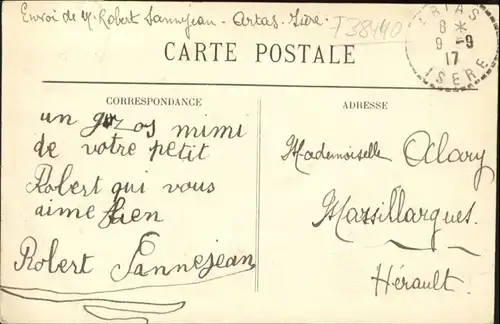 Envoi de M. Robert Sannejean - Artas. Isère.
T38440
ARTAS
8 *
9 -9
17
ISERE
CARTE POSTALE
CORRESPONDANCE
ADRESSE
un gros mimi
de votre petit
Robert qui vous
aime bien
Robert Sannejean
Mademoiselle Alary
Marsillargues.
Hérault.